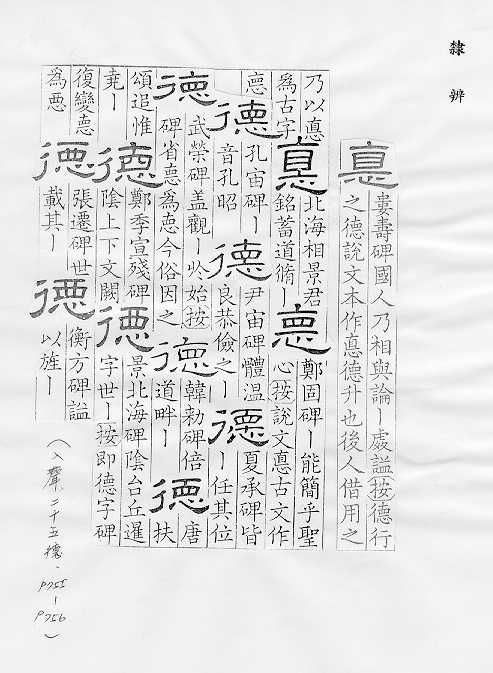 隸辨
悳
婁壽碑國人乃相與論丨處謚按德行
之德說文本作悳德升也後人借用之
乃以悳
為古字
悳
北海相景君
銘蓄道脩丨
悳
鄭固碑丨能簡乎聖
心按說文悳古文作
悳
德
孔宙碑丨
音孔昭
德
尹宙碑體溫
良恭儉之丨
德
夏承碑皆
丨任其位
德
武榮碑蓋觀丨於始按
碑省悳為悳今俗因之
德
韓勑碑倍
道畔丨
德
唐
扶
頌追惟
堯丨
德
鄭季宣殘碑
陰上下文闕
德
景北海碑陰台丘暹
字世丨按即德字碑
復變悳
為悪
德
張遷碑世
載其丨
德
衡方碑謚
以旌丨
(入聲二十五德、P755-P756)